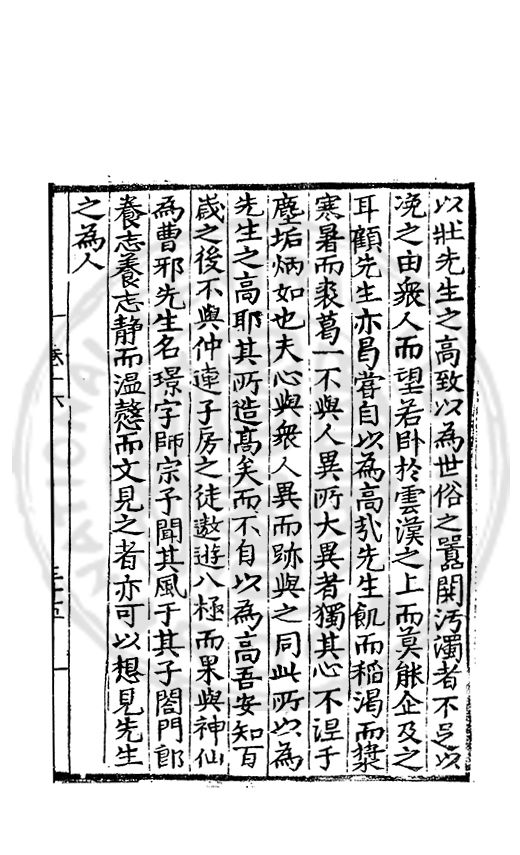 以壯先生之高致以為世俗之囂閧汚濁者不足以
浼之由衆人而望若卧於雲漢之上而莫能企及之
耳顧先生亦曷嘗自以為高㢤先生飢而稻渴而漿
寒暑而裘葛一不與人異所大異者獨其心不涅于
塵垢炳如也夫心與衆人異而跡與之同此所以為
先生之高耶其所造髙矣而不自以為高吾安知百
歲之後不與仲連子房之徒遨遊八極而果與神仙
為曹邪先生名璟字師宗予聞其風于其子閤門郎
養志養志静而溫慤而文見之者亦可以想見先生
之為人
卷十六
三十五